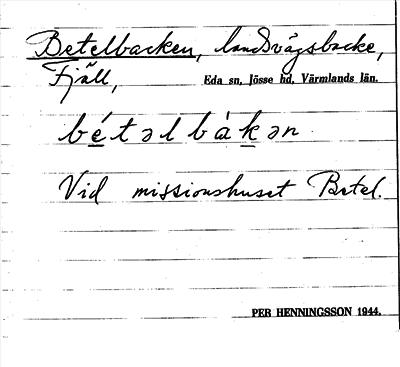 Betelbacken, landsvägsbacke,
Fjäll, Eda sn, Jösse hd, Värmlands län.
bét əl bàkən
Vid missionshuset Betel.
PER HENNINGSSON 1944.